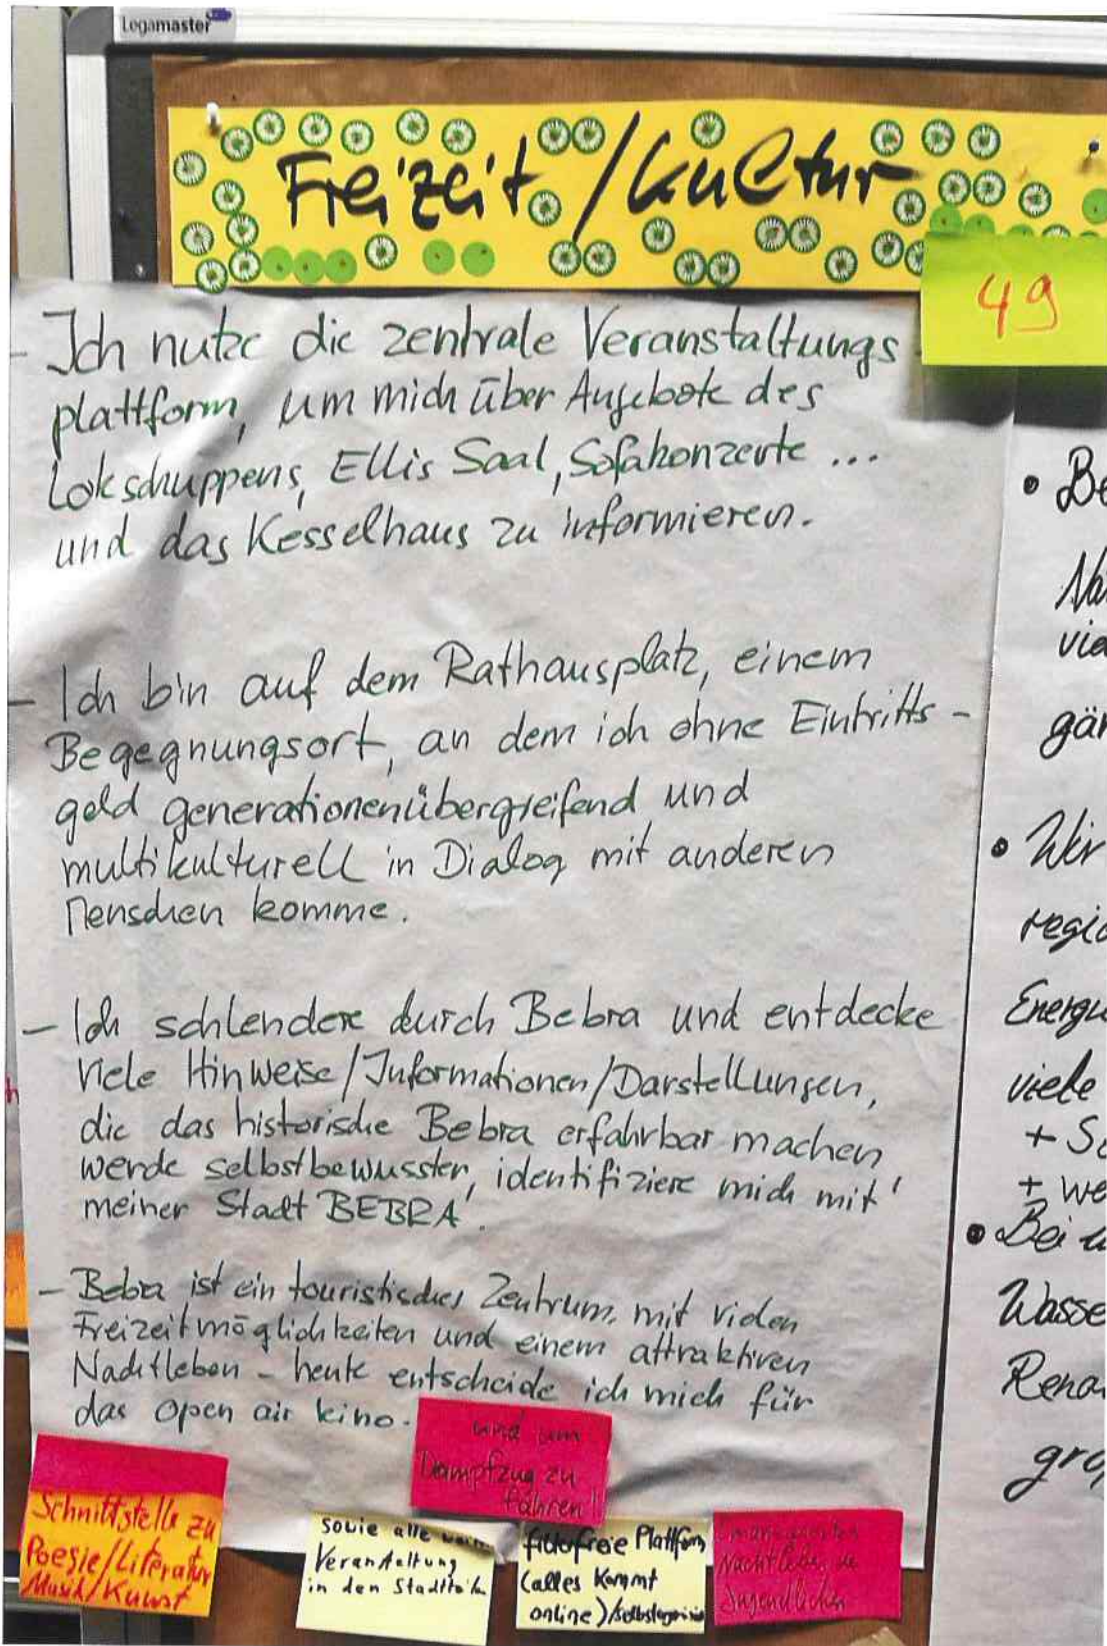 Legamaster
Freizeit/Kultur
49
- Ich nutze die zentrale Veranstaltungs-
plattform, um mich über Angebote des
Lokschuppens, Ellis Saal, Sofakonzerte ...
und das Kesselhaus zu informieren.
- Ich bin auf dem Rathausplatz, einem
Begegnungsort, an dem ich ohne Eintritts-
geld generationenübergreifend und
multikulturell in Dialog mit anderen
Menschen komme.
- Ich schlendere durch Bebra und entdecke
viele Hinweise/Informationen/Darstellungen,
die das historische Bebra erfahrbar machen
werde selbstbewusster, identifiziere mich mit
meiner Stadt BEBRA.
- Bebra ist ein touristisches Zentrum, mit vielen
Freizeitmöglichkeiten und einem attraktiven
Nachtleben - heute entscheide ich mich für
das open air kino.
und um
Dampfzug zu
fahren!
Schnittstelle zu
Poesie/Literatur
Musik/Kunst
sowie alle
Veranstaltung
in den Stadtteilen
filterfreie Plattform
(alles kommt
online)
Nachtleben
Jugendlichen
• Be
Na
vie
gär
• Wir
regio
Energie
viele
+ S
+ we
• Bei u
Wasse
Rena
gro